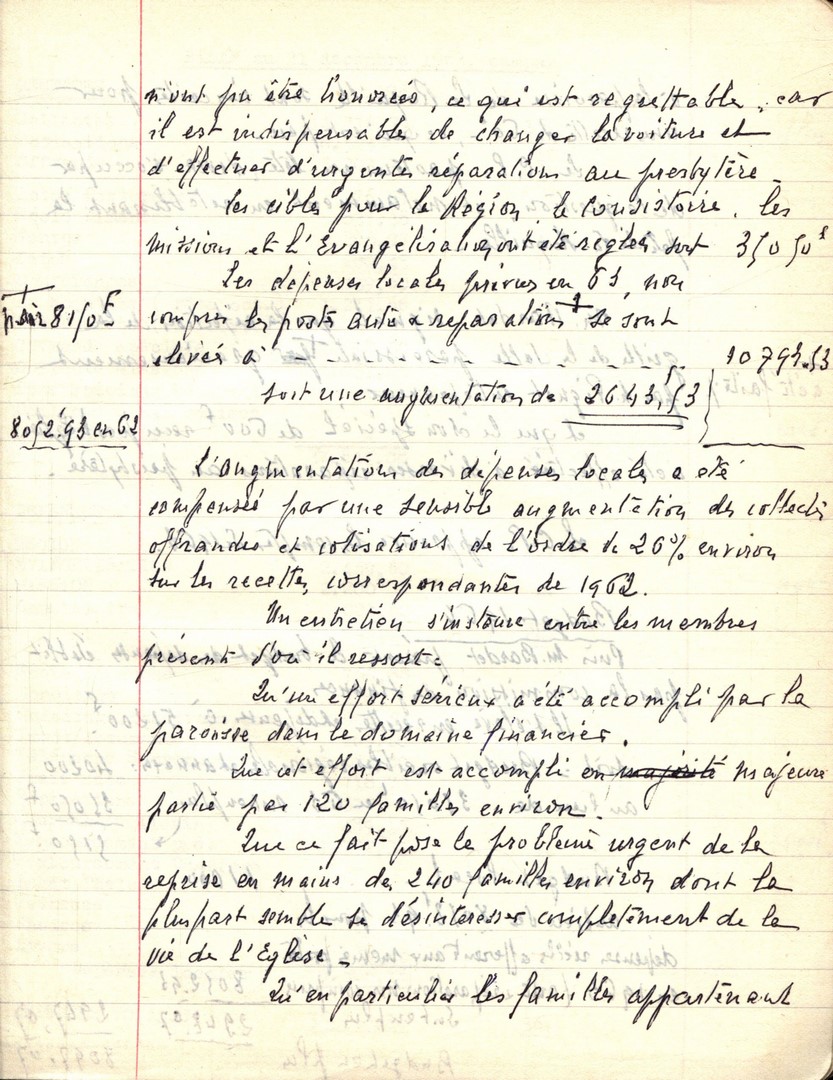 n'ont pu être honorées, ce qui est regrettable, car
il est indispensable de changer la voiture et
d'effectuer d'urgentes réparations au presbytère_
Les cibles pour la Région, le Consistoire, les
missions et l'Evangélisation, ont été réglés soit 35050f
Les dépenses locales prévues en 63, non
8150F
compris les posts auto & réparations se sont
élevées à - - - - - - - - - 10793.53
soit une augmentation de 2643,53
8052,93 en 62
L'augmentation des dépenses locales a été
compensée par une sensible augmentation des collectes
offrandes et cotisations de l'ordre de 26% environ
sur les recettes, correspondantes de 1962.
Un entretien s'instaure entre les membres
présents d'où il ressort:
Qu'un effort sérieux a été accompli par la
paroisse dans le domaine financier.
Que cet effort est accompli en majorité majeure
partie par 120 familles environ.
Que ce fait pose le problème urgent de la
reprise en mains de 240 familles environ dont la
plupart semble se désintéresser complètement de la
vie de l'Eglise_
Qu'en particulier les familles appartenant